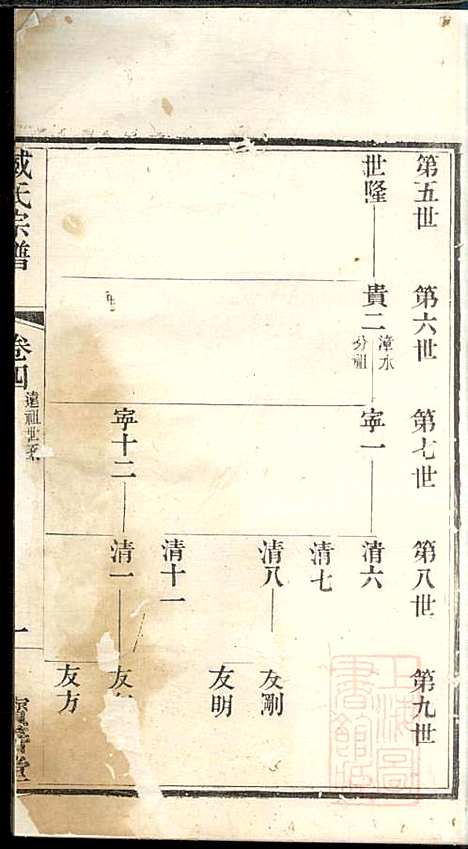 第五世
世隆
第六世
貴二
漳水
分祖
第七世
寧一
寧十二
第八世
清六
清七
清八
清十一
清一
第九世
友剛
友明
友
友方
戚氏宗譜
卷四
遠祖世系
一
上海圖書館藏